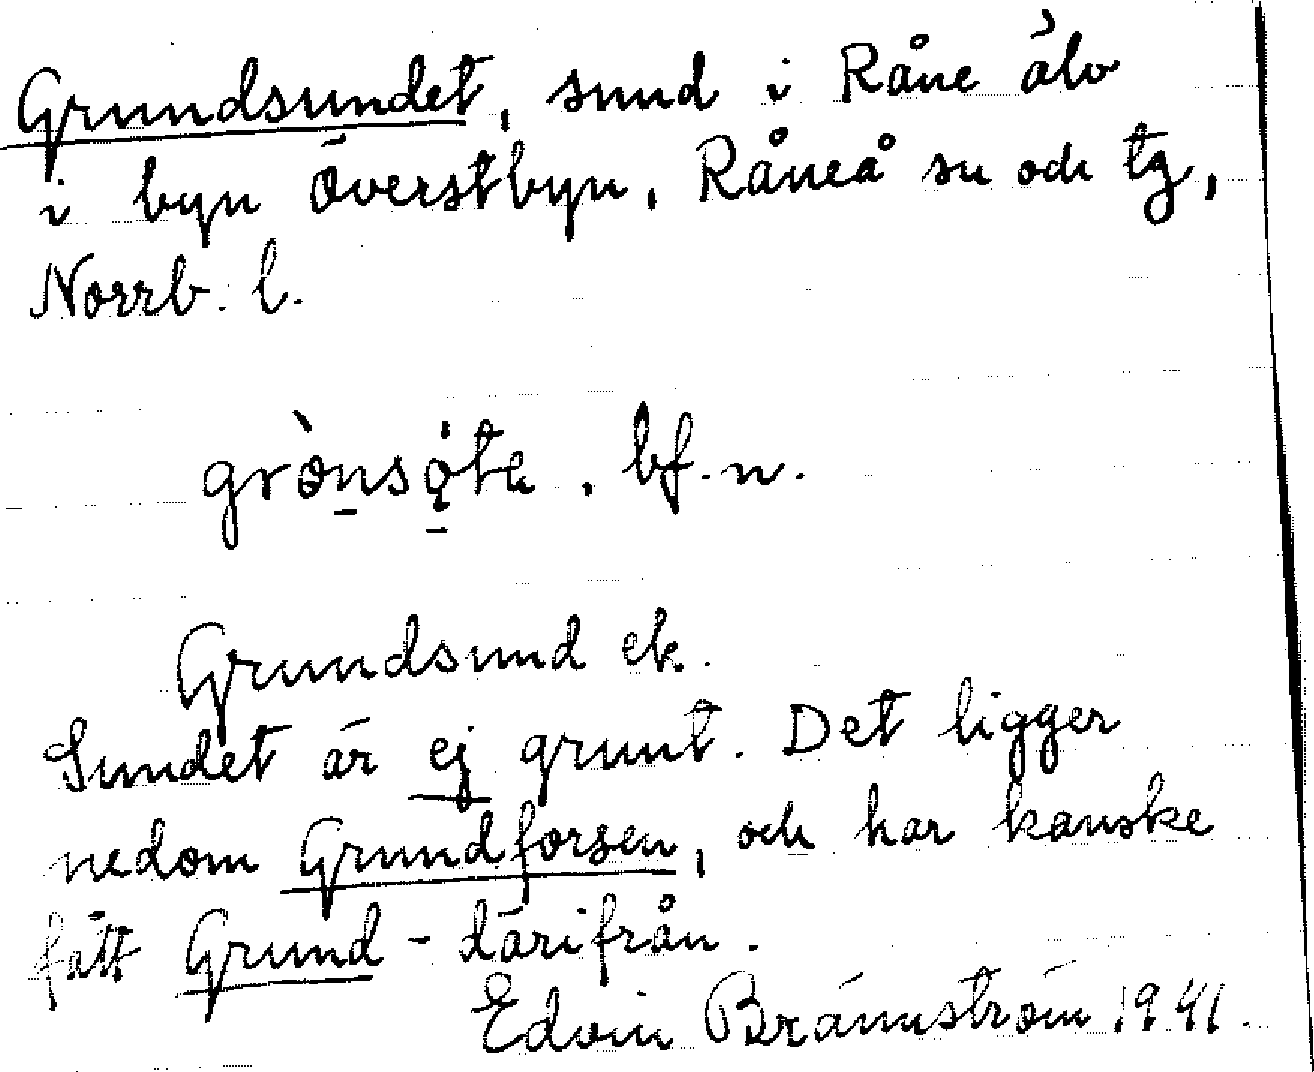 Grundsundet, sund i Råne älv
i byn Överstbyn, Råneå sn och tg,
Norrb. l.
bf. n.
Grundsund ek.
Sundet är ej grunt. Det ligger
nedom Grundforsen, och har kanske
fått Grund- därifrån.
Edvin Brännström 1941.